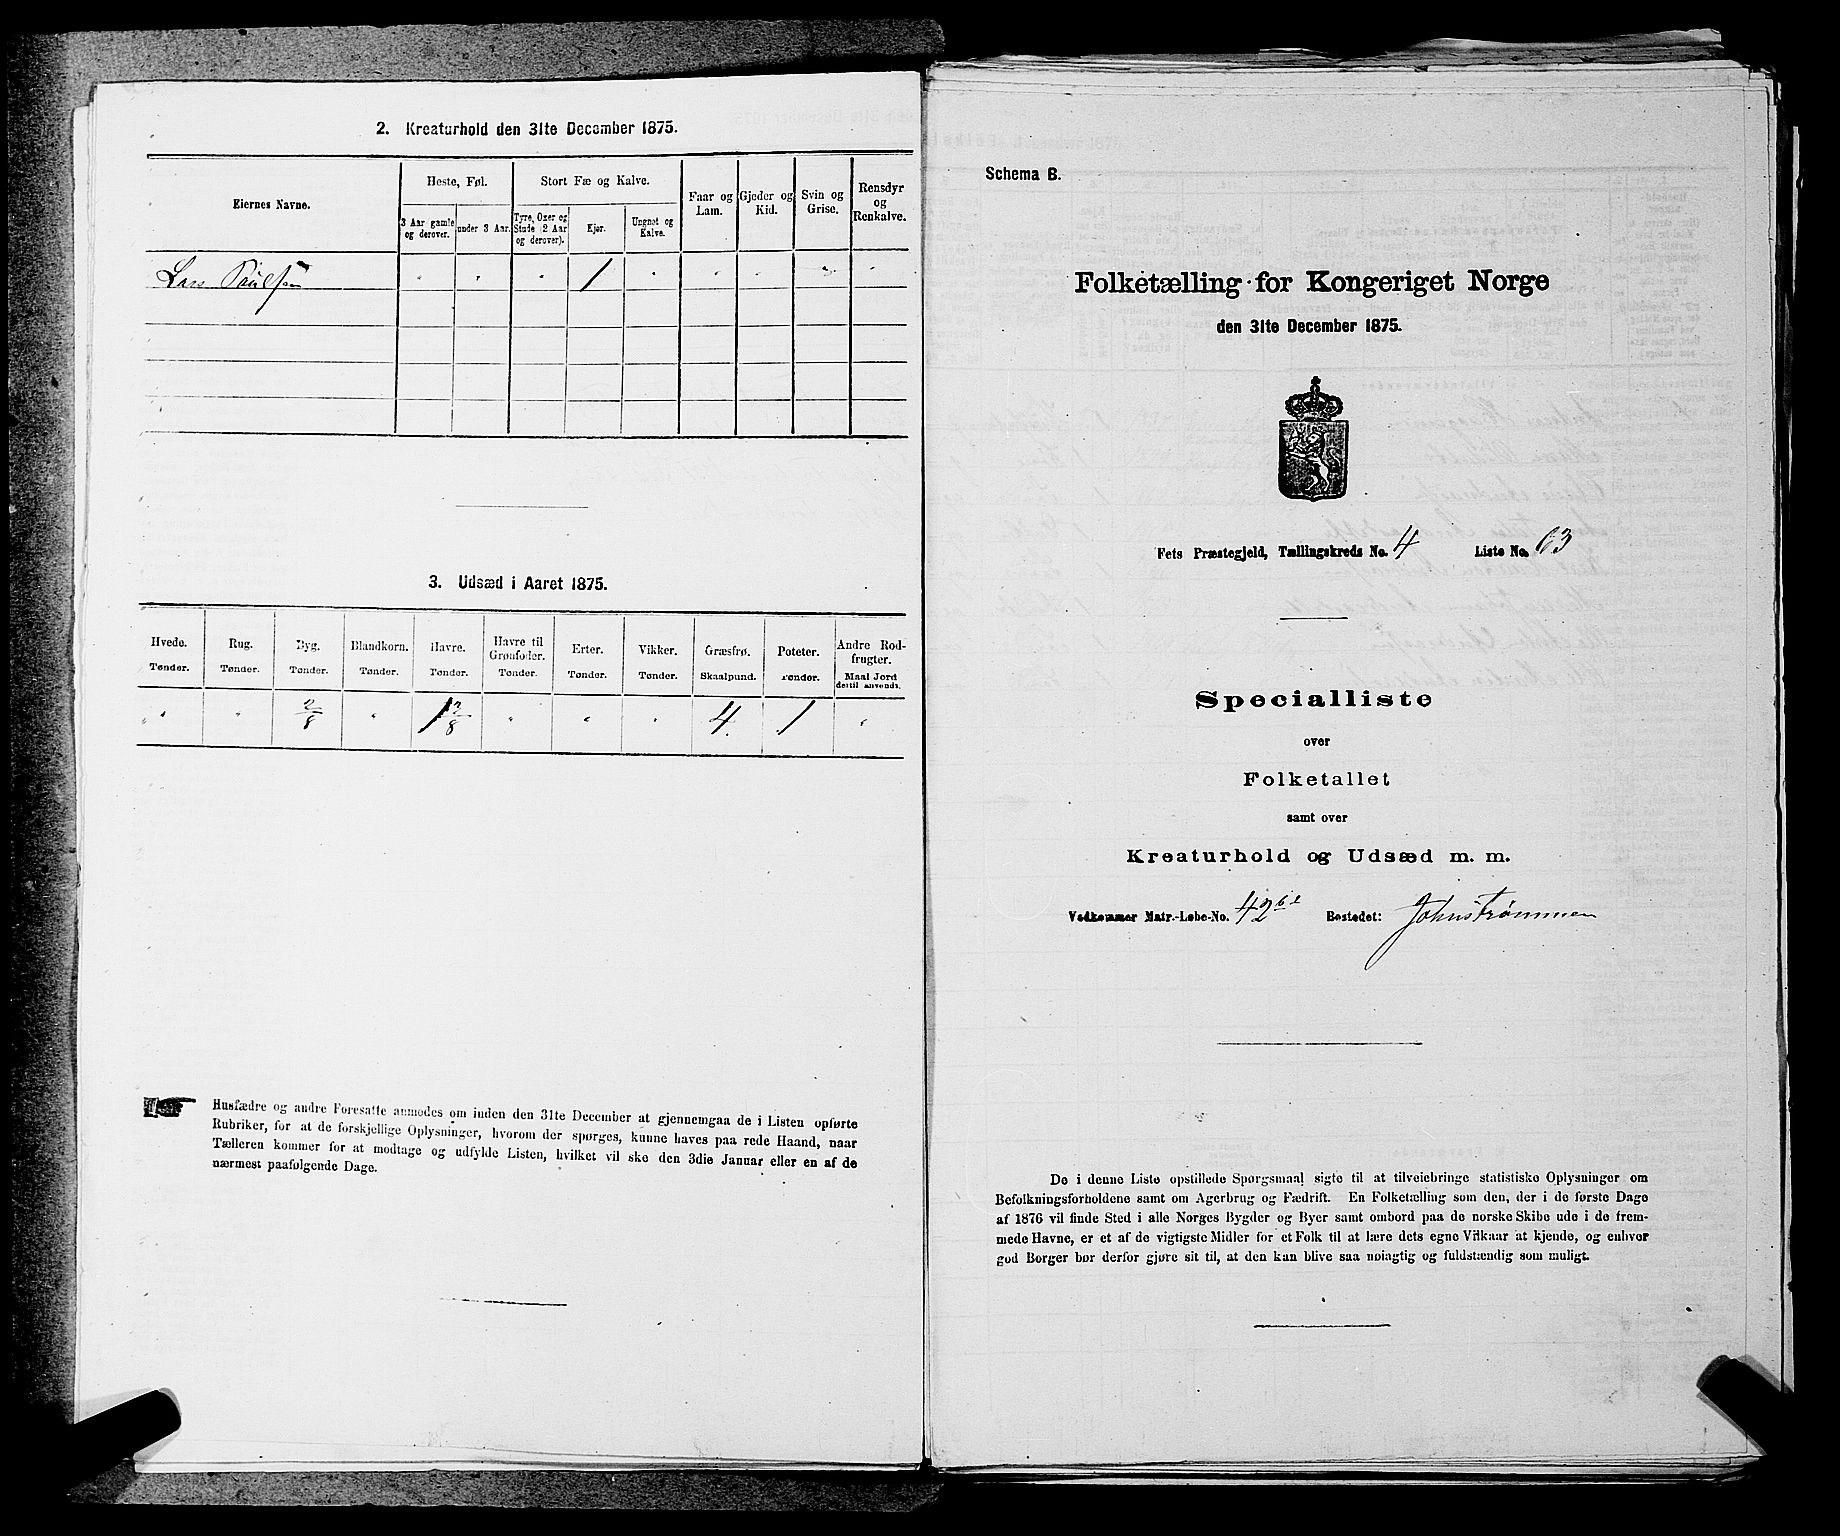 2. Kreaturhold den 31te December 1875.
Eiernes Navne.
Heste, Føl.
Stort Fæ og Kalve.
Faar og Lam.
Gjeder og Kid.
Svin og Grise.
Rensdyr og Renkalve.
3 Aar gamle og derover.
under 3 Aar.
Tyre, Oxer og Stude (2 Aar og derover).
Kjør.
Ungnøt og Kalve.
Lars Paulsen " " " 1 " " " " "
3. Udsæd i Aaret 1875.
Hvede. Rug. Byg. Blandkorn. Havre. Havre til Grønfoder. Erter. Vikker. Græsfrø. Poteter. Andre Rodfrugter.
Tønder. Tønder. Tønder. Tønder. Tønder. Tønder. Tønder. Tønder. Skaalpund. Tønder. Maal Jord dertil anvendt.
" " 2/8 " 1 2/8 " " " 4. 1 "
Husfædre og andre Foresatte anmodes om inden den 31te December at gjennemgaa de i Listen opførte
Rubriker, for at de forskjellige Oplysninger, hvorom der spørges, kunne haves paa rede Haand, naar
Tælleren kommer for at modtage og udfylde Listen, hvilket vil ske den 3die Januar eller en af de
nærmest paafølgende Dage.
Schema B.
Folketælling for Kongeriget Norge
den 31te December 1875.
Fets Præstegjeld, Tællingskreds No. 4 Liste No. 63
Specialliste
over
Folketallet
samt over
Kreaturhold og Udsæd m. m.
Vedkommer Matr.-Løbe-No. 42 Bostedet: Johnstrømmen
De i denne Liste opstillede Spørgsmaal sigte til at tilveiebringe statistiske Oplysninger om
Befolkningsforholdene samt om Agerbrug og Fædrift. En Folketælling som den, der i de første Dage
af 1876 vil finde Sted i alle Norges Bygder og Byer samt ombord paa de norske Skibe ude i de frem-
mede Havne, er et af de vigtigste Midler for et Folk til at lære dets egne Vilkaar at kjende, og enhver
god Borger bør derfor gjøre sit til, at den kan blive saa nøiagtig og fuldstændig som muligt.